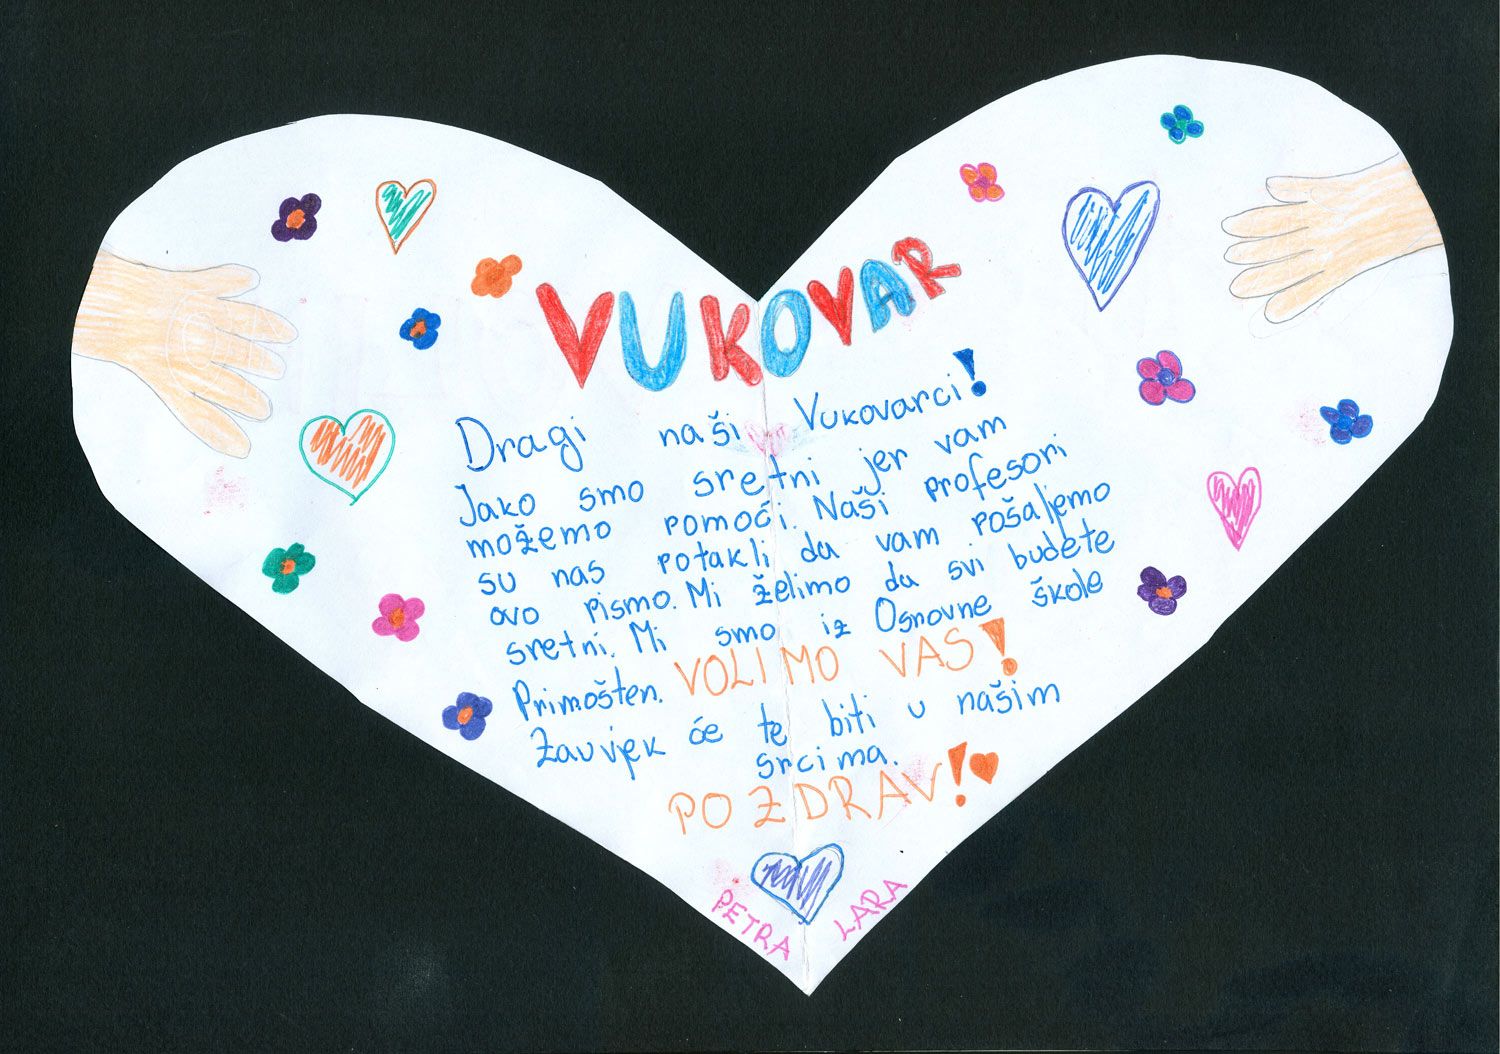 VUKOVAR
Dragi naši Vukovarci!
Jako smo sretni jer vam
možemo pomoći. Naši profesori
su nas potakli da vam pošaljemo
ovo pismo. Mi želimo da svi budete
sretni. Mi smo iz Osnovne škole
Primošten. VOLIMO VAS!
Zauvjek će te biti u našim
srcima.
POZDRAV!
PETRA LARA